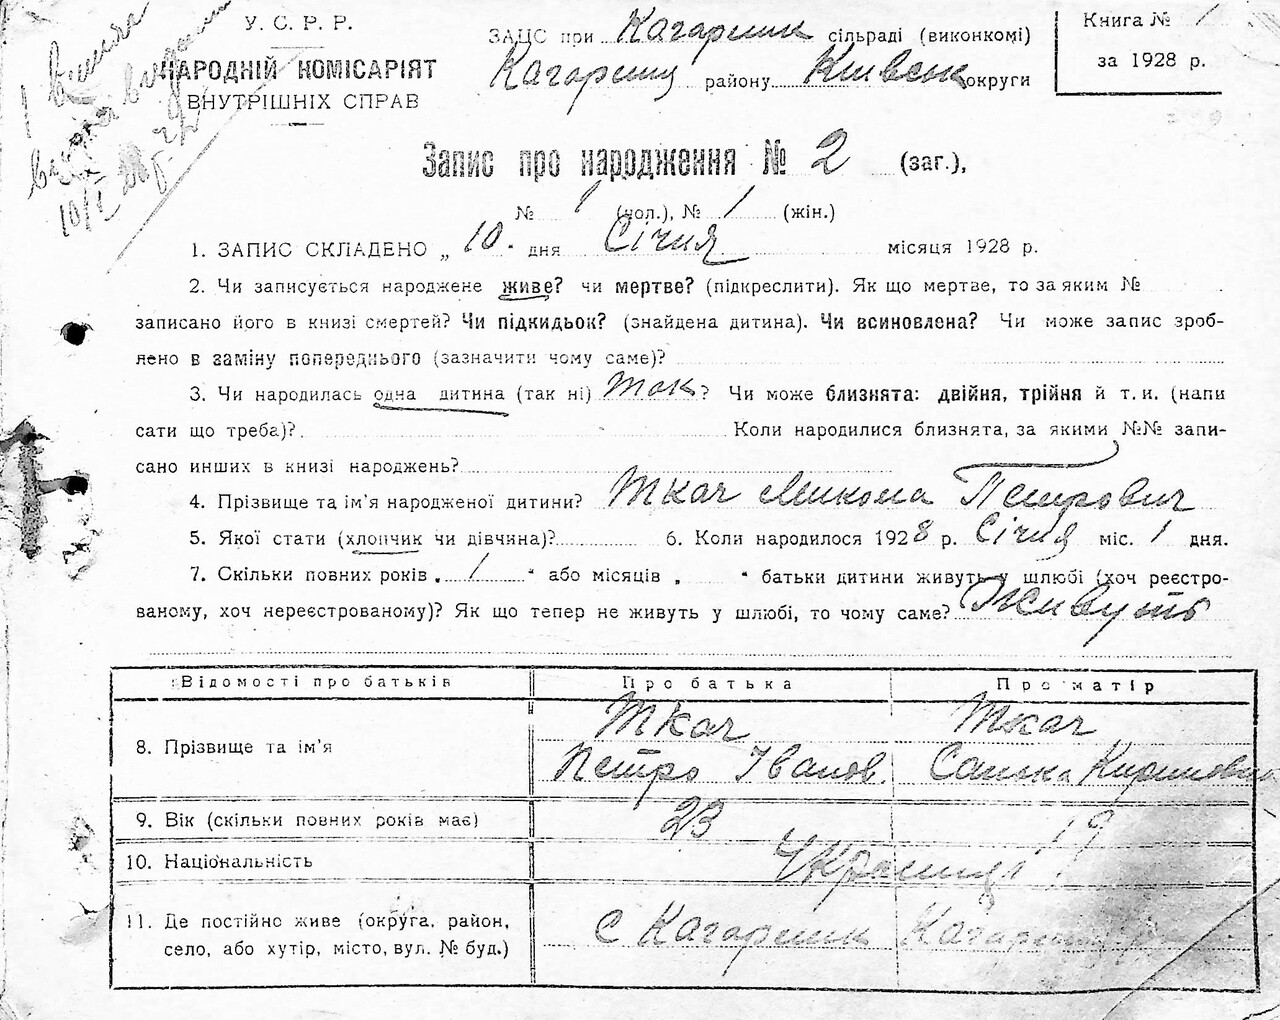 У. С. Р. Р.
НАРОДНІЙ КОМІСАРІЯТ
ВНУТРІШНІХ СПРАВ
ЗАЦС при Кагарлик сільраді (виконкомі)
Кагарлиц району Київськ округи
Книга № 1
за 1928 р.
Запис про народження № 2 (заг.),
№ 1 (чол.), № 1 (жін.)
1. ЗАПИС СКЛАДЕНО „ 10. дня Січня місяця 1928 р.
2. Чи записується народжене живе? чи мертве? (підкреслити). Як що мертве, то за яким №
записано його в книзі смертей? Чи підкидьок? (знайдена дитина). Чи всиновлена? Чи може запис зроб-
лено в заміну попереднього (зазначити чому саме)?
3. Чи народилась одна дитина (так ні) Так? Чи може близнята: двійня, трійня й т. и. (напи
сати що треба)? Коли народилися близнята, за якими №№ запи-
сано инших в книзі народжень?
4. Прізвище та ім'я народженої дитини? Ткач Микола Петрович
5. Якої стати (хлопчик чи дівчина)? 6. Коли народилося 1928 р. Січня міс. 1 дня.
7. Скільки повних років „ 1 " або місяців „ " батьки дитини живуть у шлюбі (хоч реєстро-
ваному, хоч нереєстрованому)? Як що тепер не живуть у шлюбі, то чому саме? Живуть
Відомості про батьків Про батька Про матір
8. Прізвище та ім'я Ткач Ткач
Петро Іванов. Санька Кириловна
9. Вік (скільки повних років має) 23 19
10. Національність Українці
11. Де постійно живе (округа, район,
село, або хутір, місто, вул. № буд.) с Кагарлик Кагарлиц